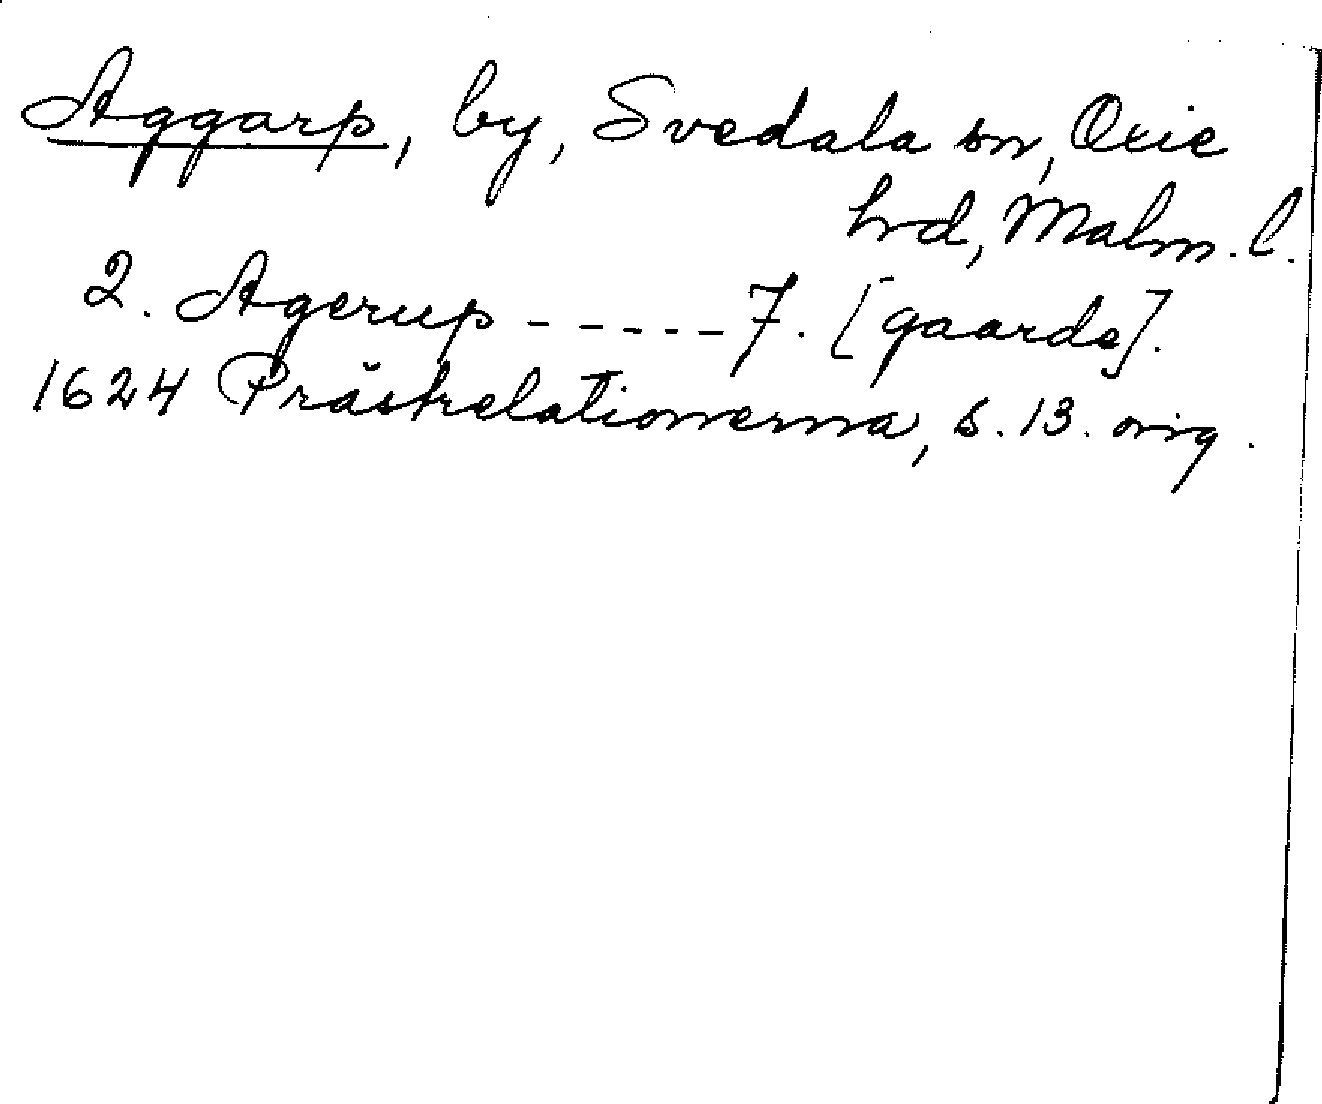 Aggarp, by, Svedala sn, Oxie
hrd, Malm. l.
2. Agerup - - - - - 7. [gaarde].
1624 Prästrelationerna, s. 13. orig.